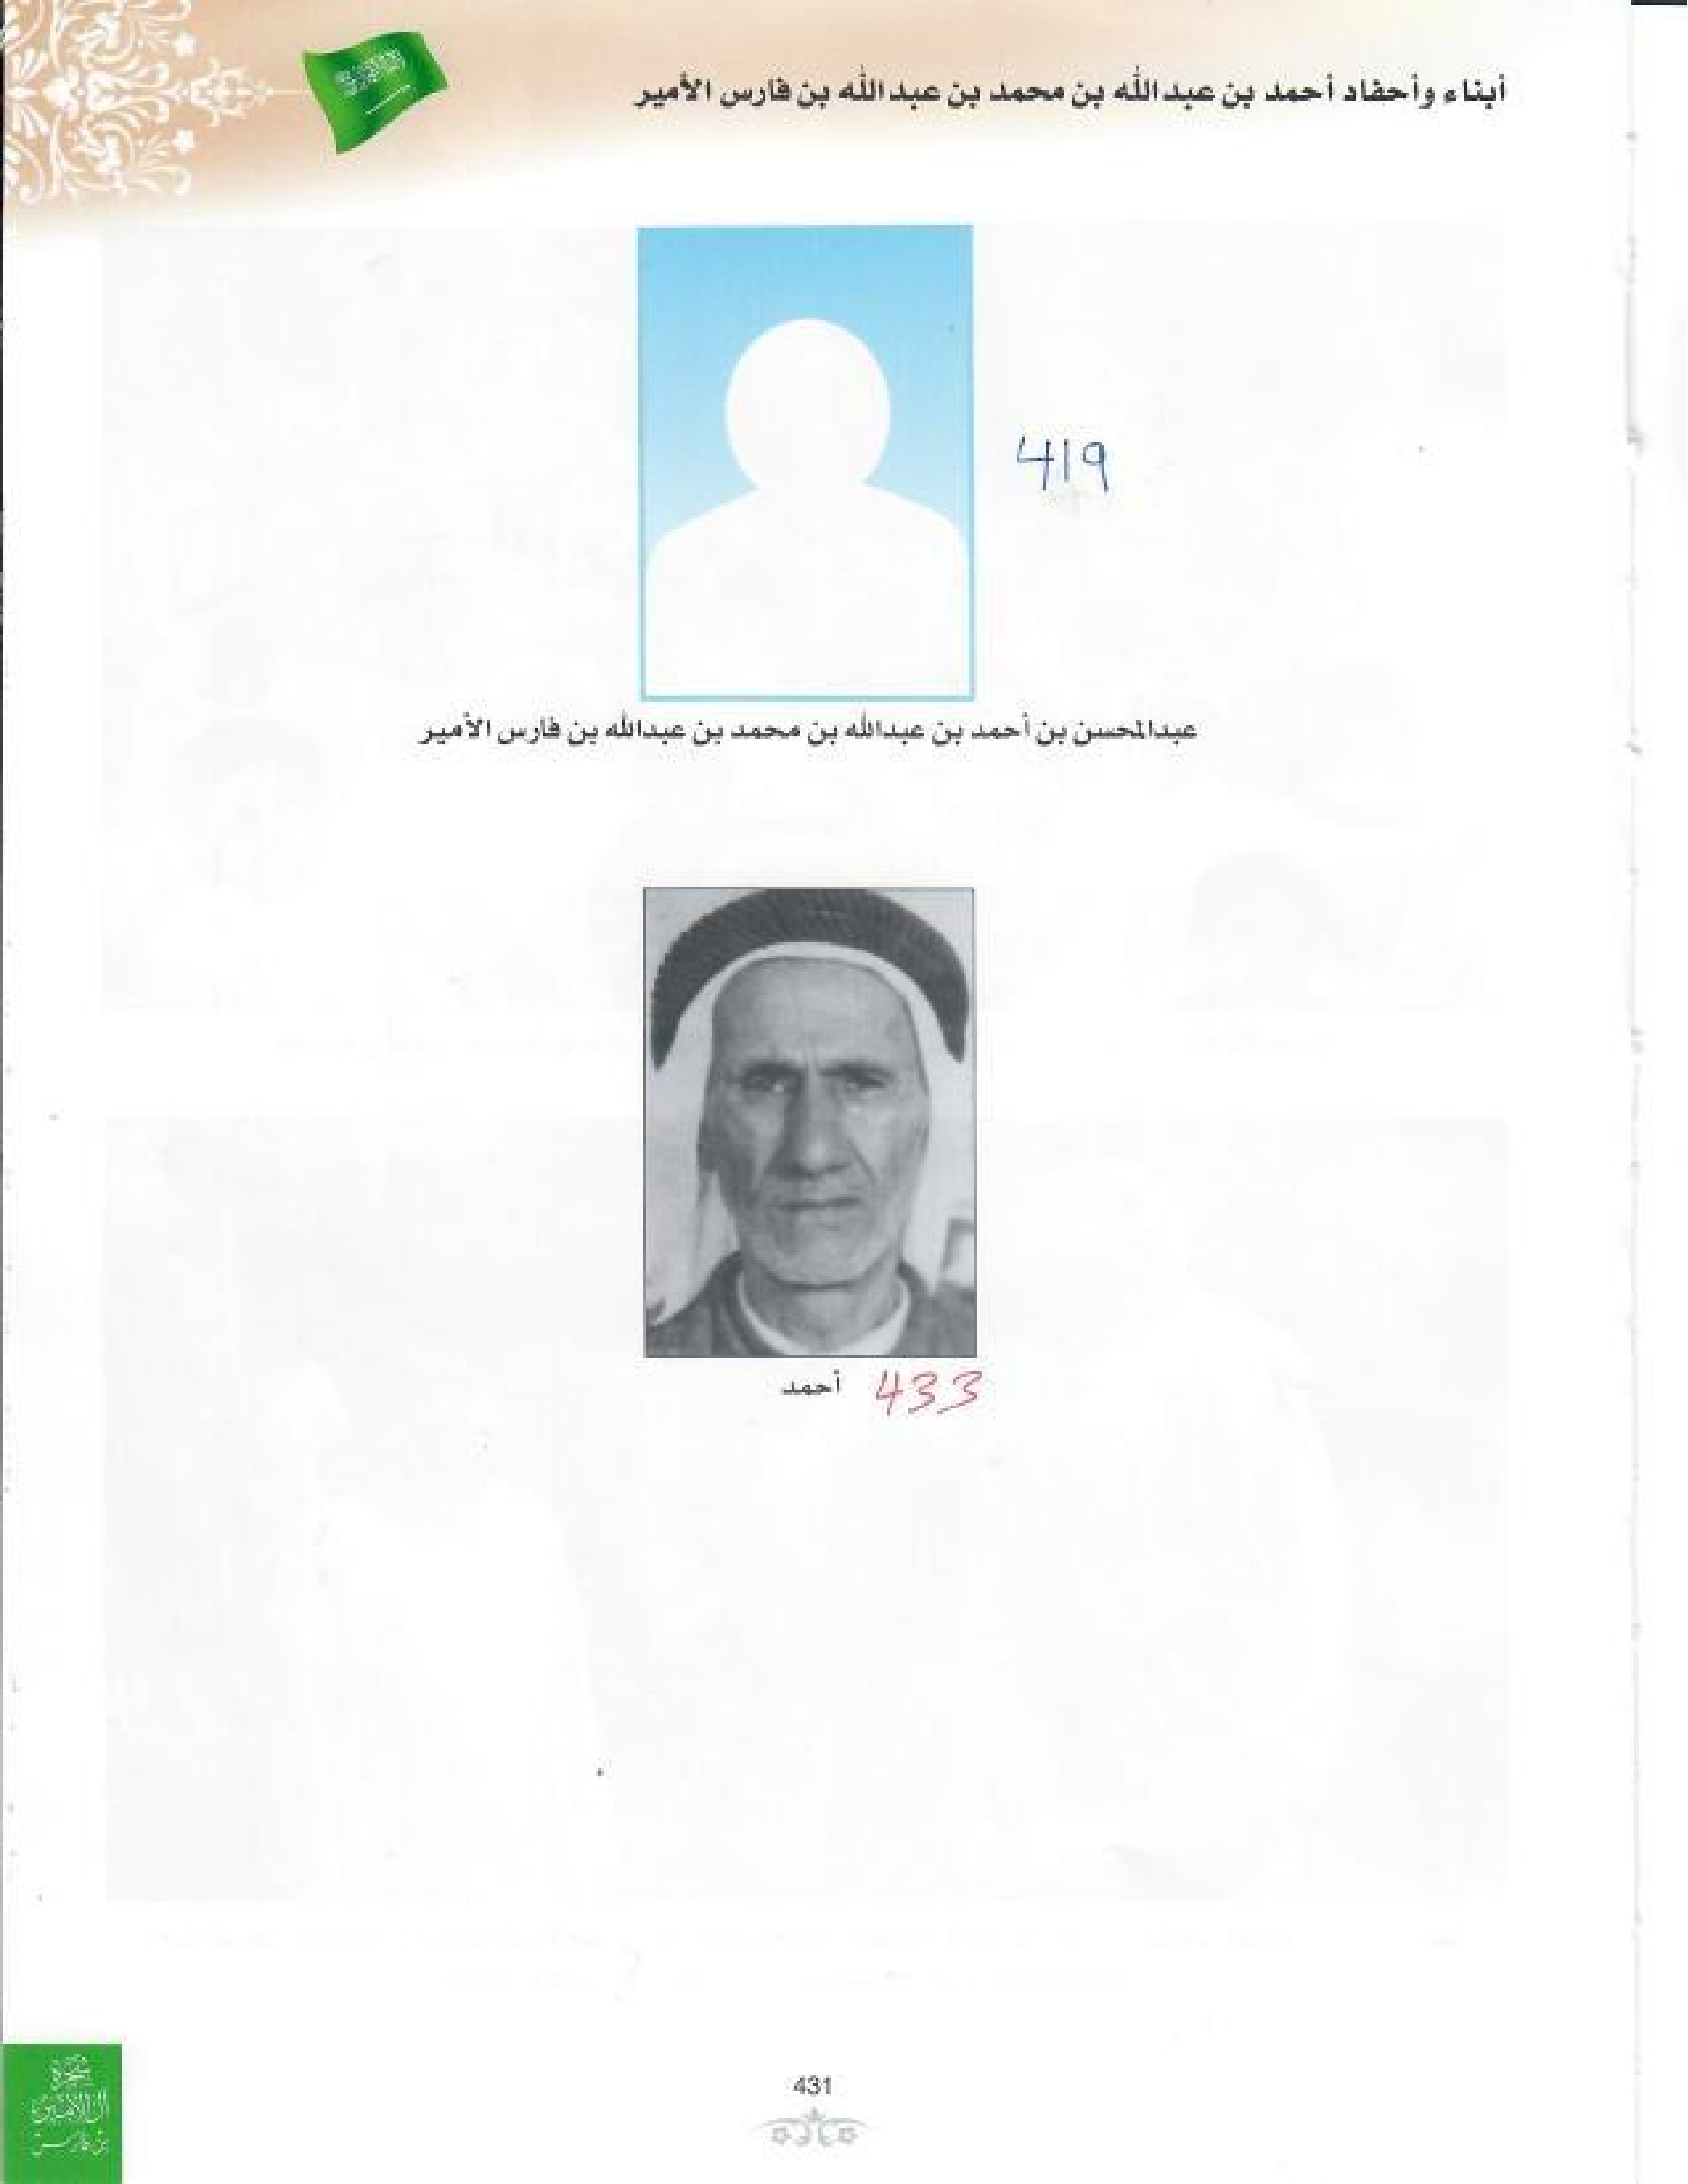 أبناء وأحفاد أحمد بن عبدالله بن محمد بن عبدالله بن فارس الأمير
419
عبدالمحسن بن أحمد بن عبدالله بن محمد بن عبدالله بن فارس الأمير
أحمد 433
شجرة
آل الأمير
بن فارس
431